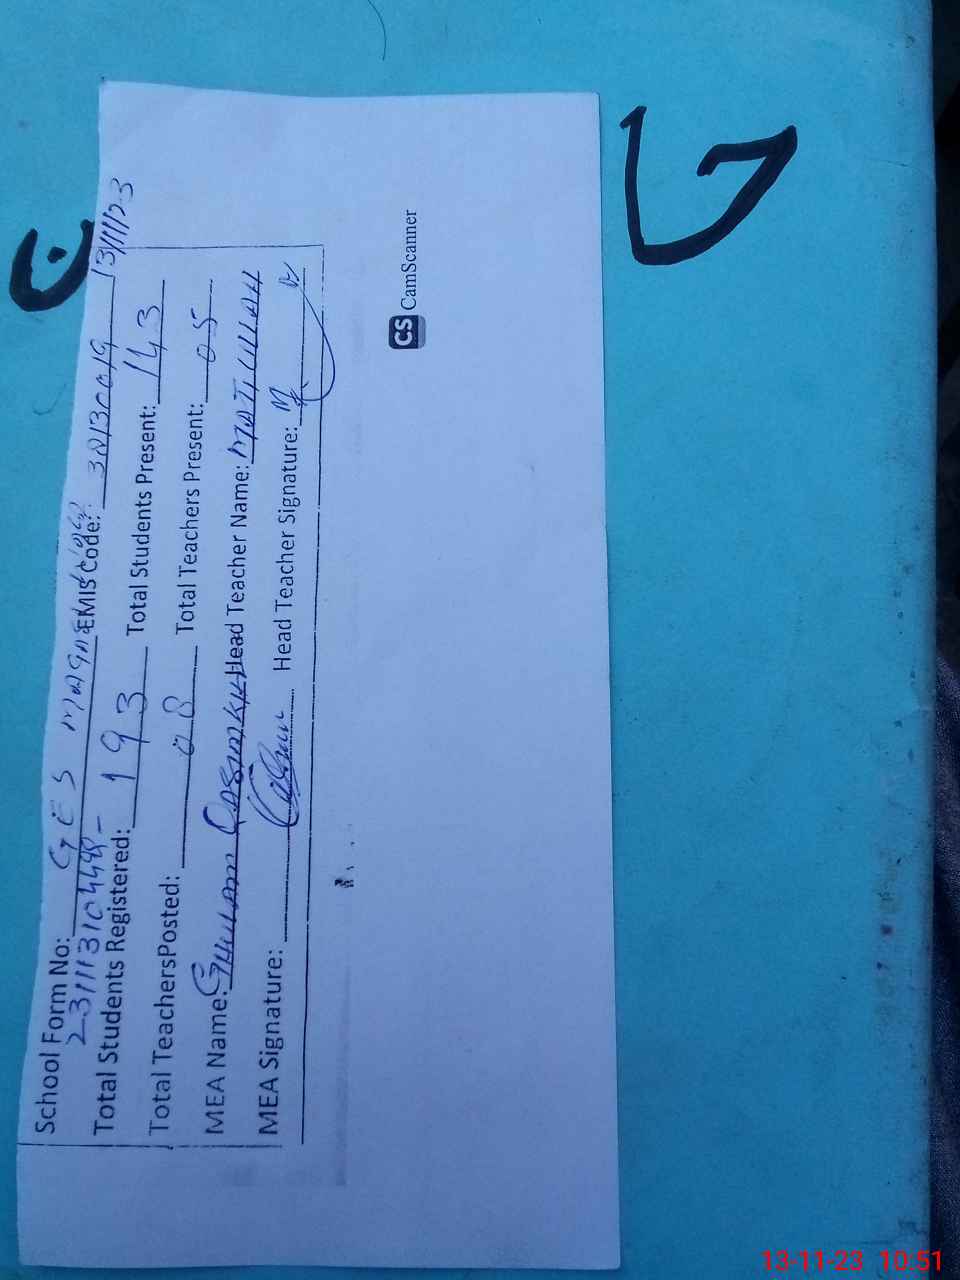 13/11/23
School Form No: GES EMIS Code: 38130019
2311131044
Total Students Registered: 193 Total Students Present: 143
Total TeachersPosted: 08 Total Teachers Present: 05
MEA Name: GHULAM QASIM KH Head Teacher Name: MATIULLAH
MEA Signature: Head Teacher Signature:
CS CamScanner
13-11-23 10:51